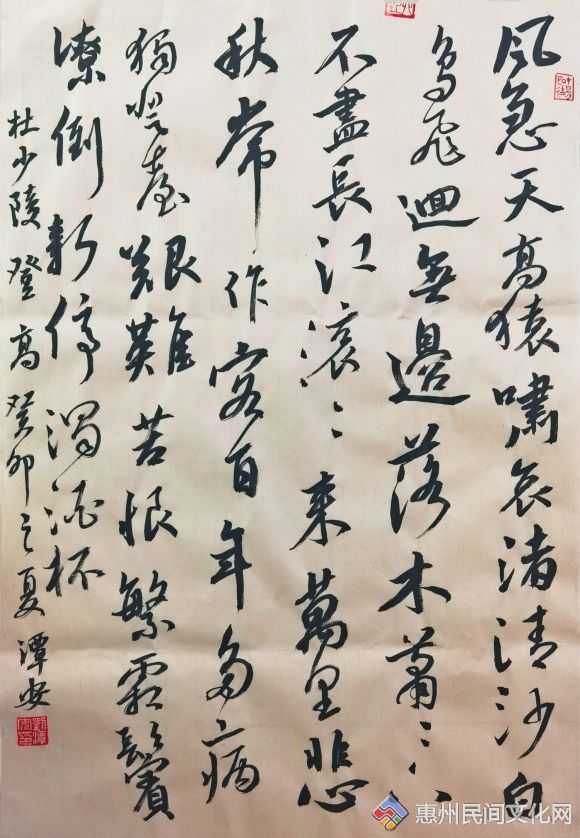 風急天高猿嘯哀渚清沙白
鳥飛迴無邊落木蕭〻下
不盡長江滾〻来萬里悲
秋常作客百年多病
獨登臺艱難苦恨繁霜鬢
潦倒新停濁酒杯
杜少陵登高癸卯之夏潭安
劉潭安印
惠州民间文化网